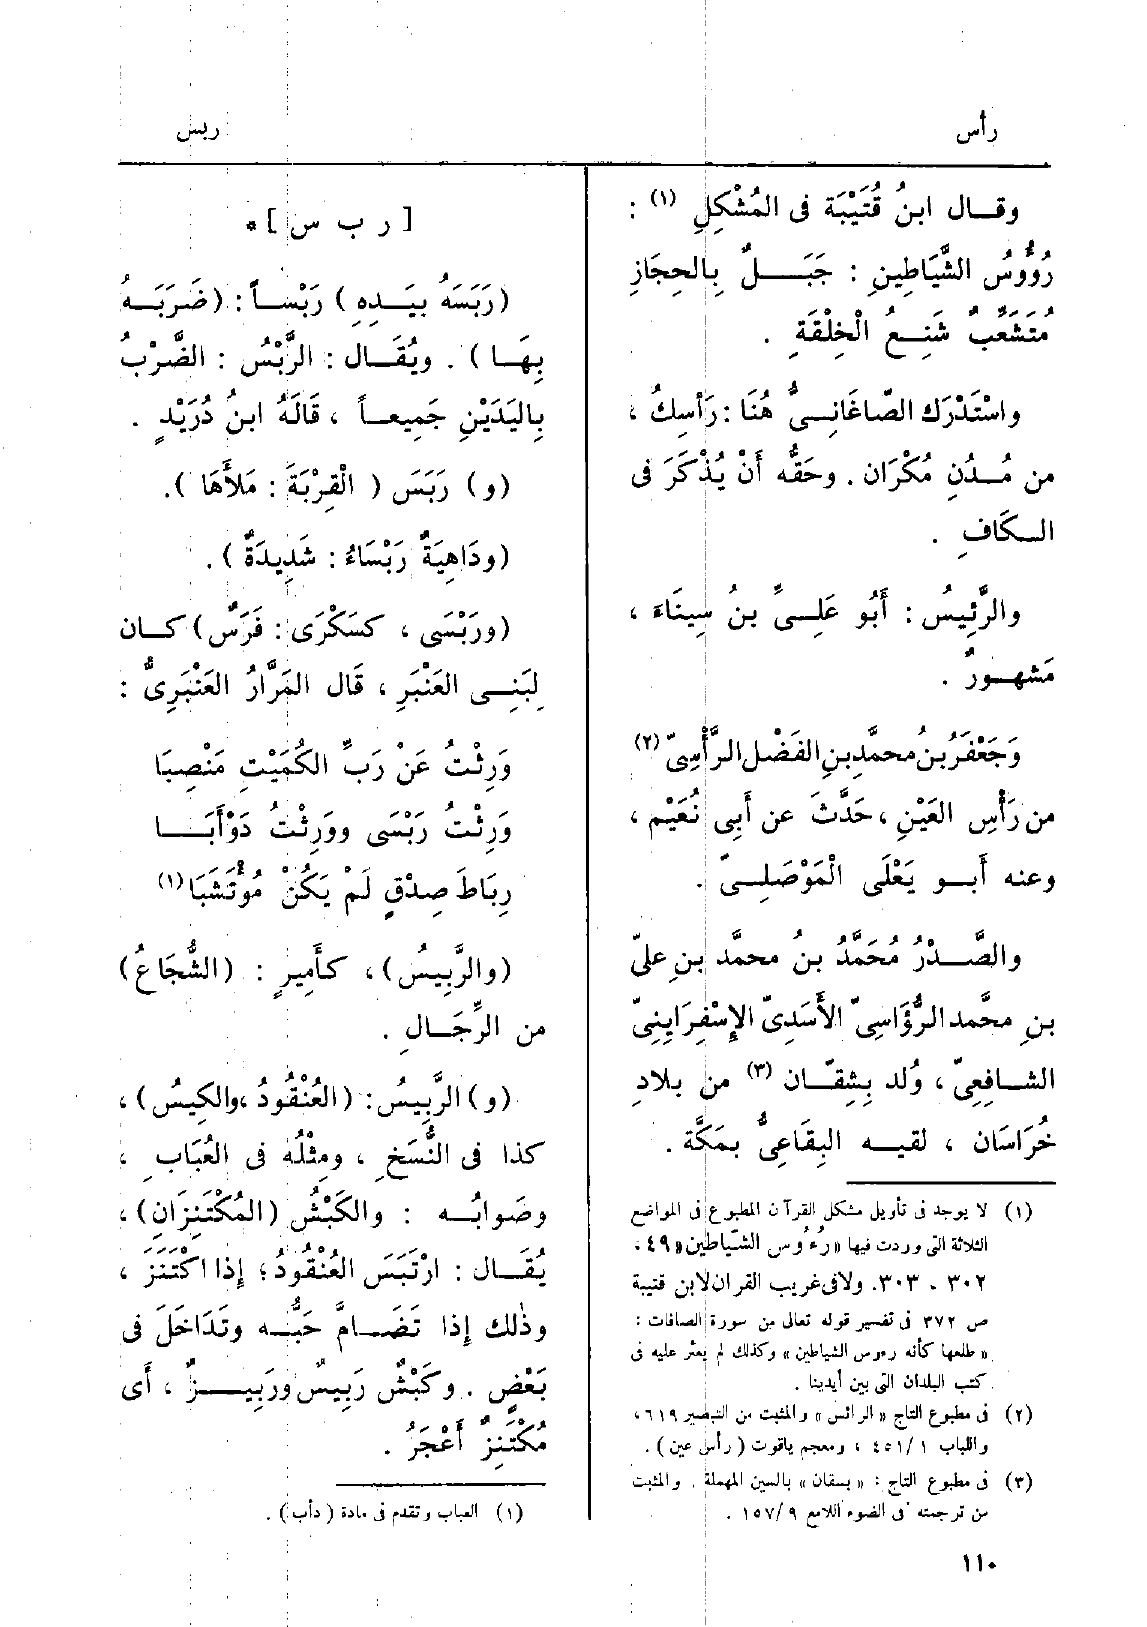 رأس
ربس
وقـال ابنُ قُتَيْبَة فى المُشْكِلِ (١) :
رُؤُوسُ الشَّيَاطِينِ : جَبَـــلٌ بِالحِجَازِ
مُتَشَعِّبٌ شَنِـعُ الْخِلْقَةِ .
واسْتَدْرَك الصّاغَانِـىُّ هُنَا : رَأْسِكُ ،
من مُـدُنِ مُكْرَان . وحَقُّه أَنْ يُذْكَرَ فى
الـكَافِ .
والرَّئِيسُ : أَبُو عَلِـىٍّ بنُ سِينَاءَ ،
مَشهـورٌ .
وَجَعْفَرُ بنُ محمَّدِ بنِ الفَضْل الرَّأْسِىّ (٢)
من رَأْسِ العَيْنِ ، حَدَّثَ عن أَبِى نُعَيْم ،
وعنه أَبـو يَعْلَى الْمَوْصَلِـىّ .
والصَّـدْرُ مُحَمَّدُ بنُ محمَّد بنِ علىّ
بنِ محمَّد الرُّؤَاسِىّ الأَسَدِىّ الإِسْفِرَايِنِىّ
الشافِعِىّ ، وُلد بِشِقّـان (٣) من بلادِ
خُرَاسَان ، لقيـه البِقَاعِىُّ بمَكَّة .
(١) لا يوجد فى تأويل مشكل القرآن المطبوع فى المواضع
الثلاثة التى وردت فيها « رُءُوس الشّيَاطين » ٤٩ ،
٣٠٢ ، ٣٠٣. ولا فى غريب القرآن لابن قتيبة
ص ٣٧٢ فى تفسير قوله تعالى من سورة الصافات :
« طلعها كأنه رءوس الشياطين » وكذلك لم يعثر عليه فى
كتب البلدان التى بين أيدينا .
(٢) فى مطبوع التاج « الرائس » والمثبت من التبصير ٦١٩ ،
واللباب ١ /٤٥١ ، ومعجم ياقوت ( رأس عين ) .
(٣) فى مطبوع التاج : « بسقان » بالسين المهملة . والمثبت
من ترجمته فى الضوء اللامع ٩ /١٥٧ .
[ ر ب س ] *
(رَبَسَهُ بيَـدِهِ ) رَبْسـاً : (ضَرَبَـهُ
بِهَـا ) . ويُقَـال : الرَّبْسُ : الضَّرْبُ
بِاليَدَيْنِ جَمِيعـاً ، قَالَهُ ابنُ دُرَيْدٍ .
(و) رَبَسَ ( الْقِرْبَةَ : مَلأَهَا ).
(ودَاهِيَةٌ رَبْسَاءُ : شَدِيدَةٌ ) .
(ورَبْسَى ، كسَكْرَى : فَرَسٌ) كـان
لِبَنِـى العَنْبَرِ ، قَال المَرَّارُ العَنْبَرِىُّ :
وَرِثْتُ عَنْ رَبِّ الكُمَيْتِ مَنْصِبَا
وَرِثْتُ رَبْسَى ووَرِثْتُ دَوْأَبَـا
رِبَاطَ صِدْقٍ لَمْ يَكُنْ مُؤْتَشَبَا (١)
(والرَّبِيسُ) ، كأَمِيرٍ : (الشُّجَاعُ)
من الرِّجَـالِ .
(و) الرَّبِيسُ: (العُنْقُودُ ، والكِيسُ) ،
كذا فى النُّسَخِ ، ومِثْلُه فى العُبَابِ ،
وصَوابُـه : والكَبْشُ (المُكْتَنِزَانِ) ،
يُقَـال : ارْتَبَسَ العُنْقُودُ ؛ إذا اكْتَنَزَ ،
وذٰلك إذا تَضَـامَّ حَبُّـه وتَدَاخَلَ فى
بَعْضٍ . وكَبْشٌ رَبِيسٌ ورَبِيـزٌ ، أَى
مُكْتَنِزٌ أَعْجَرُ .
(١) العباب وتقدم فى مادة ( دأب ) .
١١٠